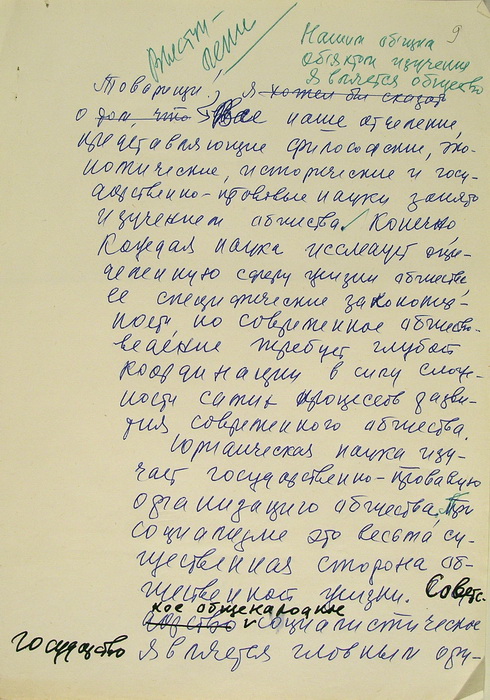 Выступ-
ление
9
Нашим общим
объектом изучения
является общество
Товарищи! Я хотел бы сказать
о том, что Все наше отделение,
представляющие философские, эко-
номические, исторические и госу-
дарственно-правовые науки занято
изучением общества. Конечно
Каждая наука исследует опре-
деленную сферу жизни общества,
ее специфические закономер-
ности, но современное общество-
ведение требует глубокой
координации в силу слож-
ности самих процессов разви-
тия современного общества.
Юридическая наука изу-
чает государственно-правовую
организацию общества. При
социализме это весьма су-
щественная сторона об-
щественной жизни. Советс-
кое общенародное
социалистическое
государство является главным ору-